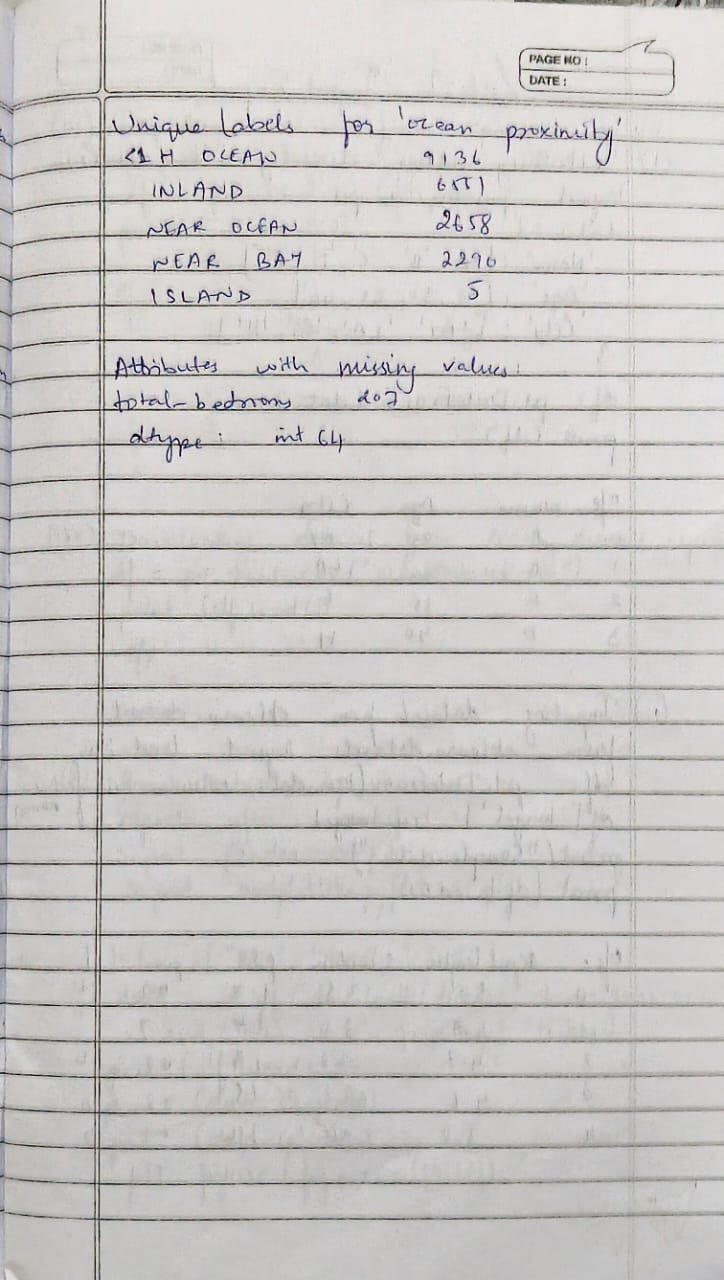 PAGE NO :
DATE :
Unique Labels for 'ocean proximity'
<1 H OCEAN 9136
INLAND 6551
NEAR OCEAN 2658
NEAR BAY 2290
ISLAND 5
Attributes with missing values:
total-bedrooms 207
dtype: int 64